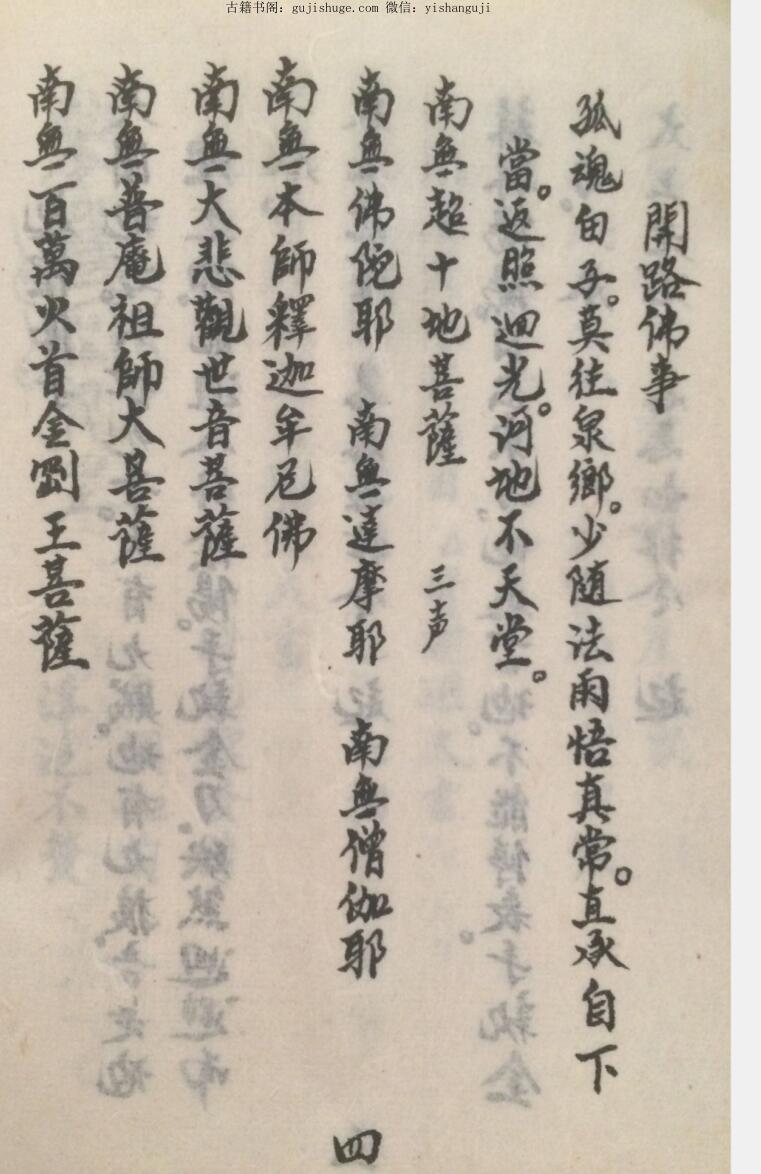 古籍书阁：gujishuge.com 微信：yishanguji
開路佛事
孤魂由子。莫往泉鄉。少随法雨悟真常。直承自下
當。返照迴光。河地不天堂。
南無超十地菩薩 三声
南無佛陀耶 南無達摩耶 南無僧伽耶
南無本師釋迦牟尼佛
南無大悲觀世音菩薩
南無普庵祖師大菩薩
南無百萬火首金剛王菩薩
四